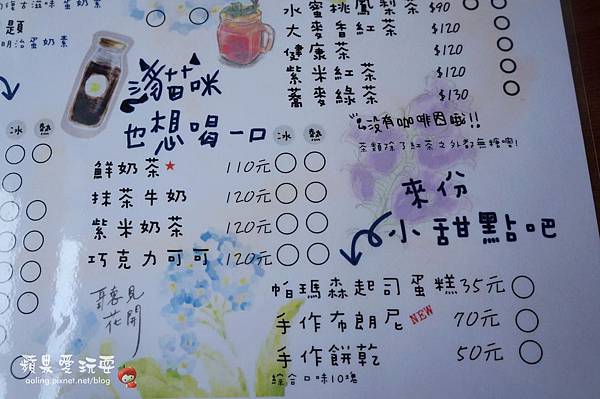 明治蛋奶素
水蜜桃鳳梨茶 $90
大麥香紅茶 $120
健康茶 $120
紫米紅茶 $120
蕎麥綠茶 $130
沒有咖啡因哦!!
茶類除了紅茶之外都無糖噢!
貓咪
也想喝一口
冰 熱
冰 熱
鮮奶茶★ 110元
抹茶牛奶 120元
紫米奶茶 120元
巧克力可可 120元
來份
小甜點吧
帕瑪森起司蛋糕 35元
手作布朗尼 NEW 70元
手作餅乾 50元
綜合口味10塊
聽見
花開
蘋果愛玩耍
aoling.pixnet.net/blog